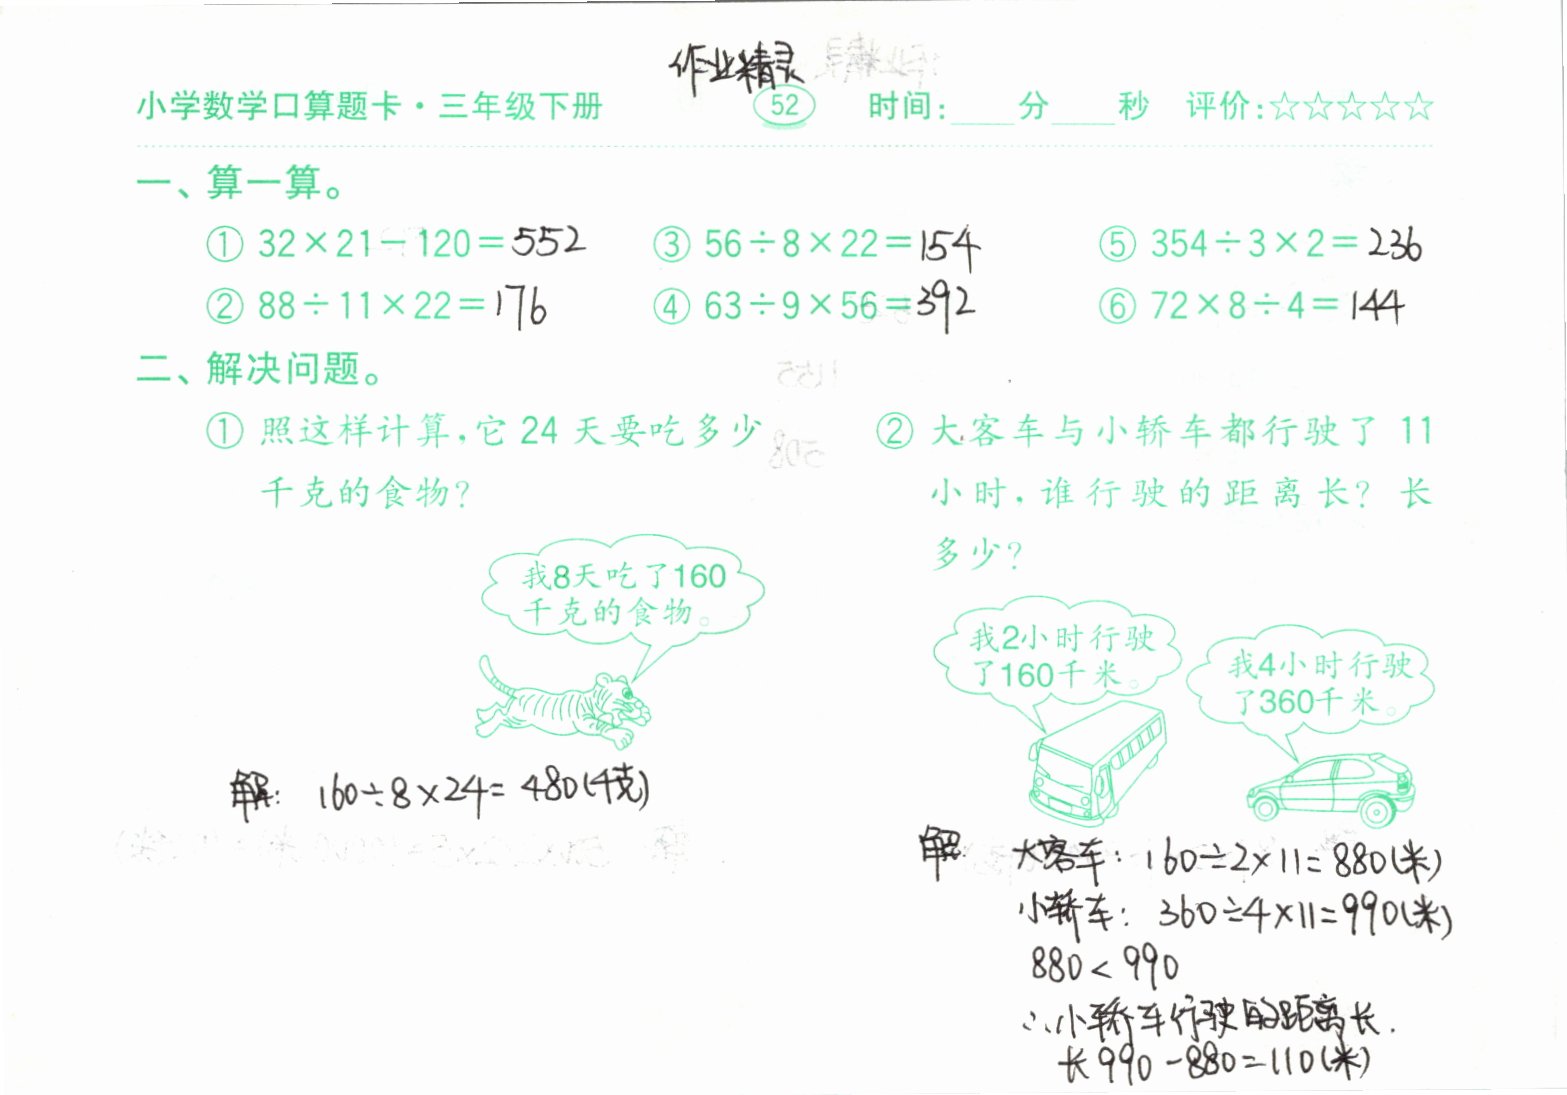 作业精灵
小学数学口算题卡·三年级下册 52 时间:____分____秒 评价:☆☆☆☆☆
一、算一算。
① 32×21－120＝552 ③ 56÷8×22＝154 ⑤ 354÷3×2＝236
② 88÷11×22＝176 ④ 63÷9×56＝392 ⑥ 72×8÷4＝144
二、解决问题。
① 照这样计算,它 24 天要吃多少
千克的食物?
我8天吃了160
千克的食物。
解: 160÷8×24=480(千克)
② 大客车与小轿车都行驶了 11
小时,谁行驶的距离长? 长
多少?
我2小时行驶
了160千米。
我4小时行驶
了360千米。
解: 大客车: 160÷2×11=880(米)
小轿车: 360÷4×11=990(米)
880<990
∴小轿车行驶的距离长.
长990-880=110(米)